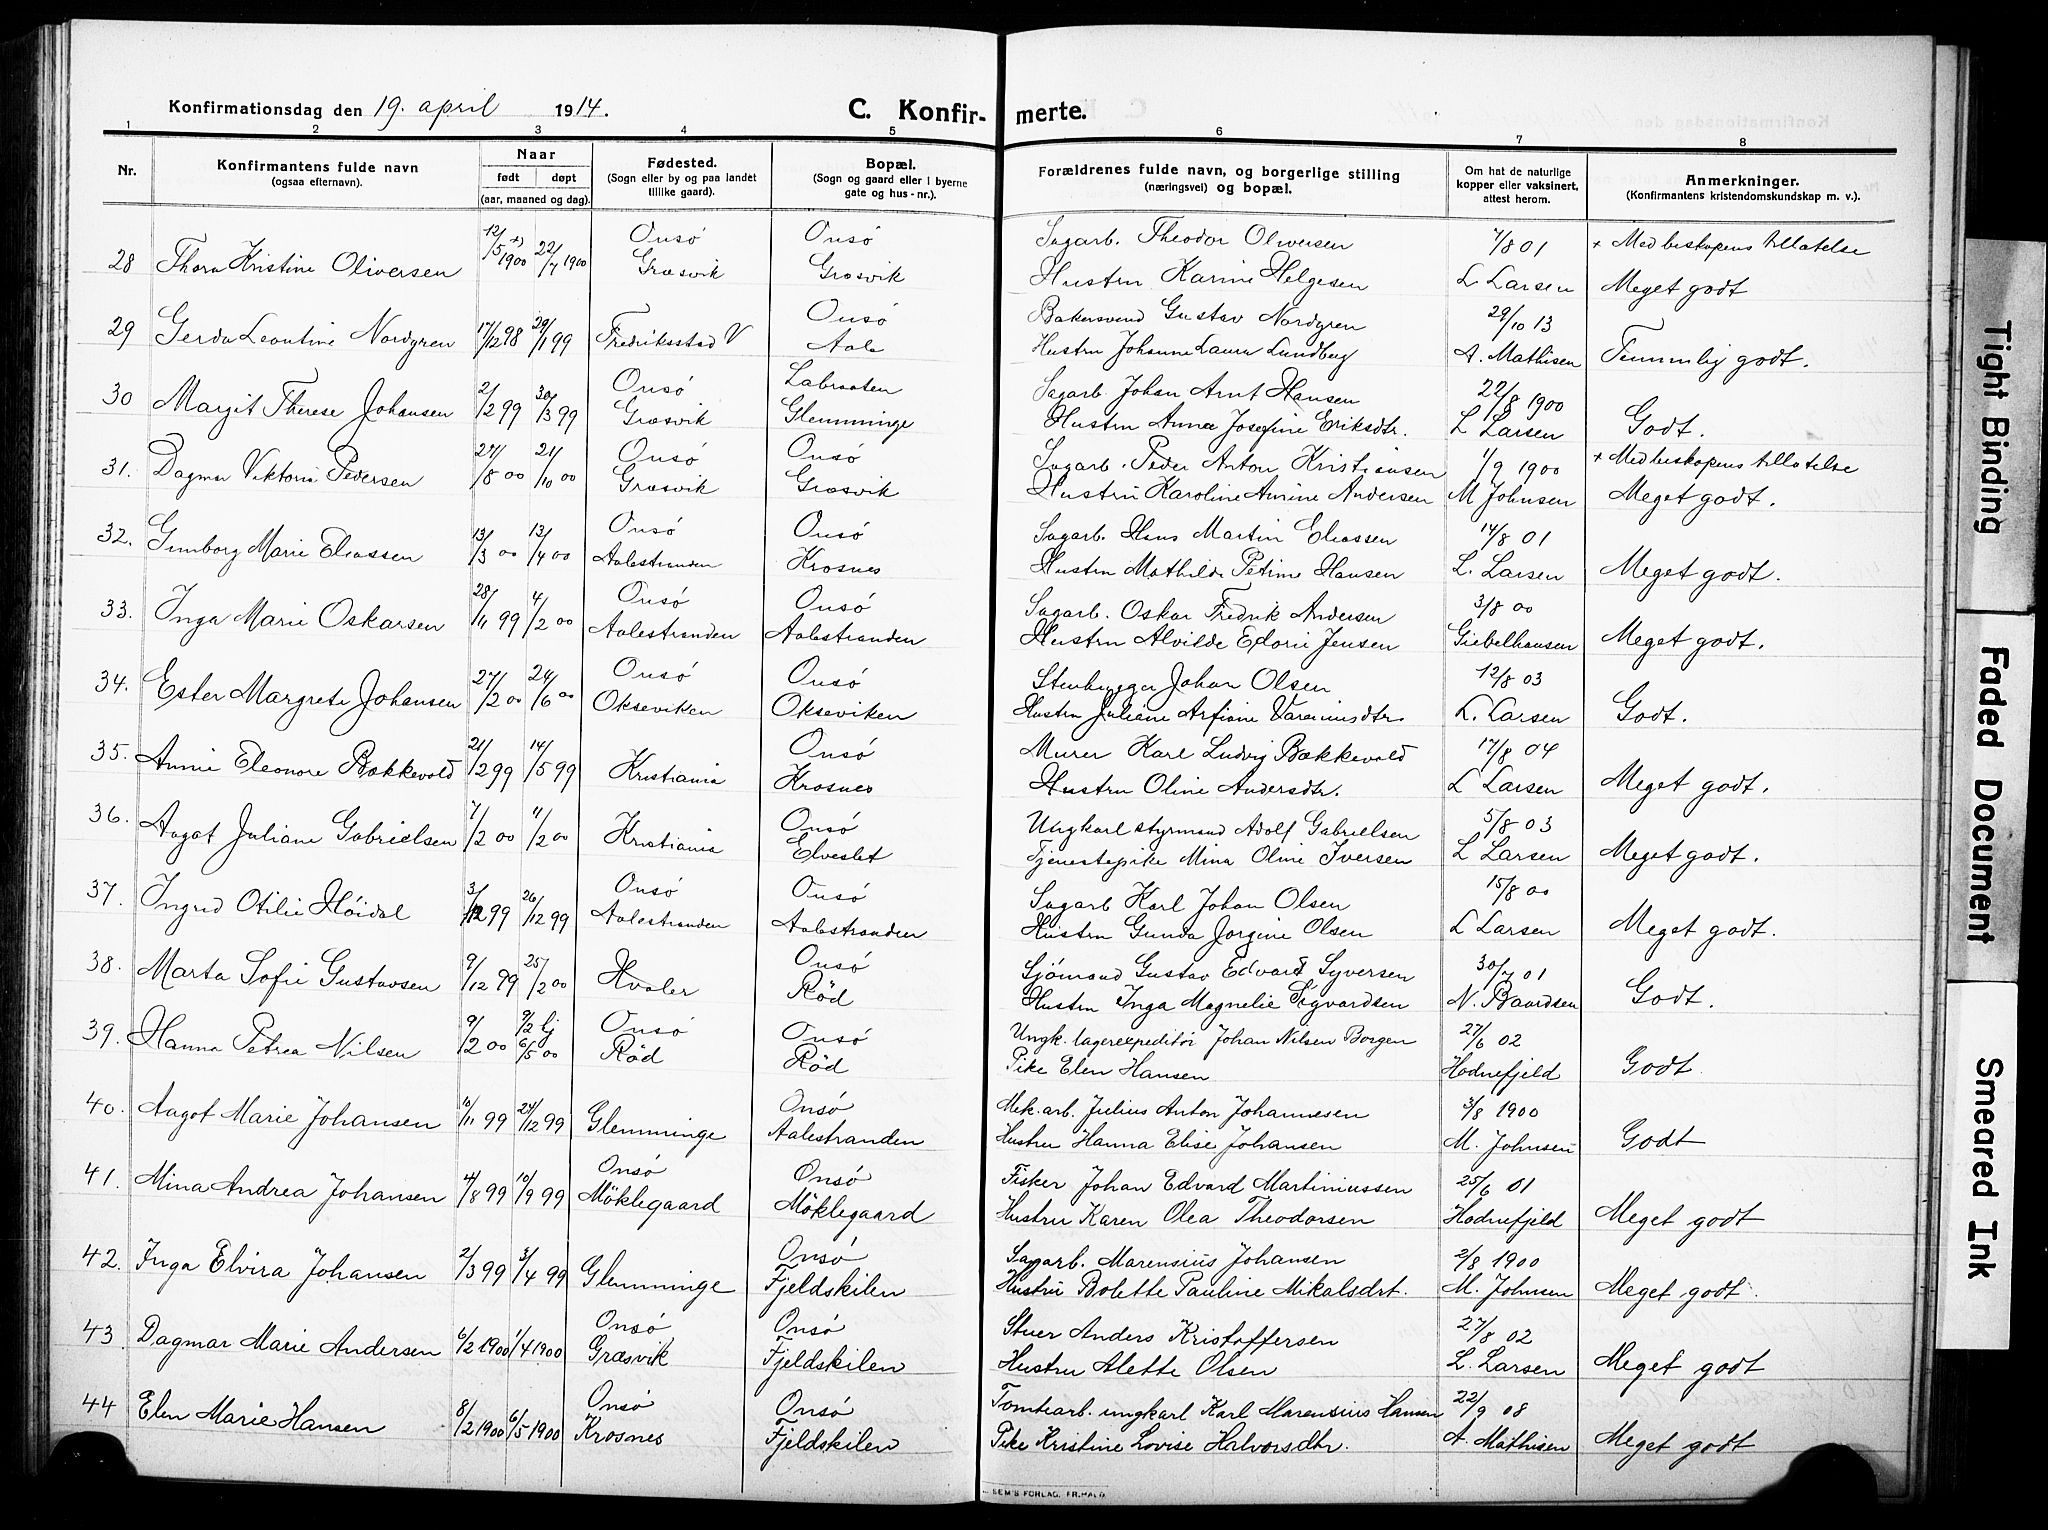 Konfirmationsdag den 19. april 1914. C. Konfir- merte.
1 2 3 4 5 6 7 8
Nr. Konfirmantens fulde navn (ogsaa efternavn). Naar født døpt (aar, maaned og dag). Fødested. (Sogn eller by og paa landet tillike gaard). Bopæl. (Sogn og gaard eller i byerne gate og hus-nr.). Forældrenes fulde navn, og borgerlige stilling (næringsvei) og bopæl. Om hat de naturlige kopper eller vaksinert, attest herom. Anmerkninger. (Konfirmantens kristendomskundskap m. v.).
12/5 +) 1900 22/7 1900 Onsö Onsö Sagarb. Theodor Oliversen 7/8 01 + Med biskopens tillatelse
28 Thora Kristine Oliversen Græsvik Græsvik Hustru Karine Helgesen L. Larsen Meget godt
Onsö Bakersvend Gustav Nordgren 29/10 13
29 Gerda Leontine Nordgren 17/12 98 29/1 99 Fredriksstad V Aale Hustru Johanne Laura Lundberg A. Mathisen Temmelig godt.
Onsö Labraaten Sagarb. Johan Arnt Hansen 22/8 1900
30 Margit Therese Johansen 2/2 99 30/3 99 Græsvik Glemminge Hustru Anna Josefine Eriksdtr. L Larsen Godt.
Onsö Onsö Sagarb. Peder Anton Kristiansen 1/9 1900 + Med biskopens tillatelse
31. Dagmar Viktoria Pedersen 27/8 00 21/10 00 Græsvik Græsvik Hustru Karoline Amine Andersen M Johnsen Meget godt.
Onsö Onsö Sagarb. Hans Martin Eliassen 14/8 01
32. Gunborg Marie Eliassen 13/3 00 13/4 00 Aalestranden Krosnes Hustru Mathilde Petrine Hansen L. Larsen Meget godt.
Onsö Onsö Sagarb. Oskar Fredrik Andersen 3/8 00
33. Inga Marie Oskarsen 28/11 99 4/2 00 Aalestranden Aalestranden Hustru Alvilde Edorie Jensen Giebelhausen Meget godt.
Onsö Onsö Stenhugger Johan Olsen 12/8 03
34. Ester Margrete Johansen 27/2 00 24/6 00 Okseviken Okseviken Hustru Juliane L. Larsen Godt.
Onsö Murer Karl Ludvig Bækkevold 17/8 04
35. Annie Eleonore Bækkevold 21/2 99 14/5 99 Kristiania Krosnes Hustru Oline Andersdtr. L Larsen Meget godt.
Onsö Ungkarl styrmand Adolf Gabrielsen 5/8 03
36. Aagot Juliane Gabrielsen 7/2 00 11/2 00 Kristiania Elveslet Tjenestepike Mina Oline Iversen L Larsen Meget godt.
Onsö Onsö Sagarb Karl Johan Olsen 15/8 00
37. Ingrid Otilie Höidal 3/12 99 26/12 99 Aalestranden Aalestranden Hustru Gunda Jorgine Olsen L Larsen Meget godt.
Onsö Sjömand Gustav Edvard Syversen 30/7 01
38. Marta Sofie Gustavsen 9/12 99 25/2 00 Hvaler Röd Hustru Inga Magnelie Sigvardsen N. Baardsen Godt.
9/2 hj Onsö Onsö Ungk. lagerexpeditör Johan Nilsen Borgen 27/6 02
39. Hanna Petrea Nilsen 9/2 00 6/5 00 Röd Röd Pike Elen Hansen Hodnefjeld Godt
Onsö Mek. arb. Julius Anton Johannesen 3/8 1900
40. Aagot Marie Johansen 10/11 99 25/12 99 Glemminge Aalestranden Hustru Hanna Elise Johansen M. Johnsen Godt
Onsö Onsö Fisker Johan Edvard Martiniussen 25/6 01
41. Mina Andrea Johansen 11/8 99 10/9 99 Möklegaard Möklegaard Hustru Karen Olea Theodorsen Hodnefjeld Meget godt
Onsö Sagarb. Marensius Johansen 2/8 1900
42. Inga Elvira Johansen 2/3 99 3/4 99 Glemminge Fjeldskilen Hustru Bolette Pauline Mikalsdrt. M. Johnsen Meget godt.
Onsö Onsö Stuer Anders Kristoffersen 27/8 02
43 Dagmar Marie Andersen 6/2 1900 1/4 1900 Græsvik Fjeldskilen Hustru Alette Olsen L. Larsen Meget godt
Onsö Onsö Tomtearb. ungkarl Karl Marensius Hansen 22/9 08
44 Elen Marie Hansen 8/2 1900 6/5 1900 Krosnes Fjeldskilen Pike Kristine Lovise Halvorsdtr. A. Mathisen Meget godt
SEM'S FORLAG. FR.HALD.
Tight Binding
Faded Document
Smeared Ink